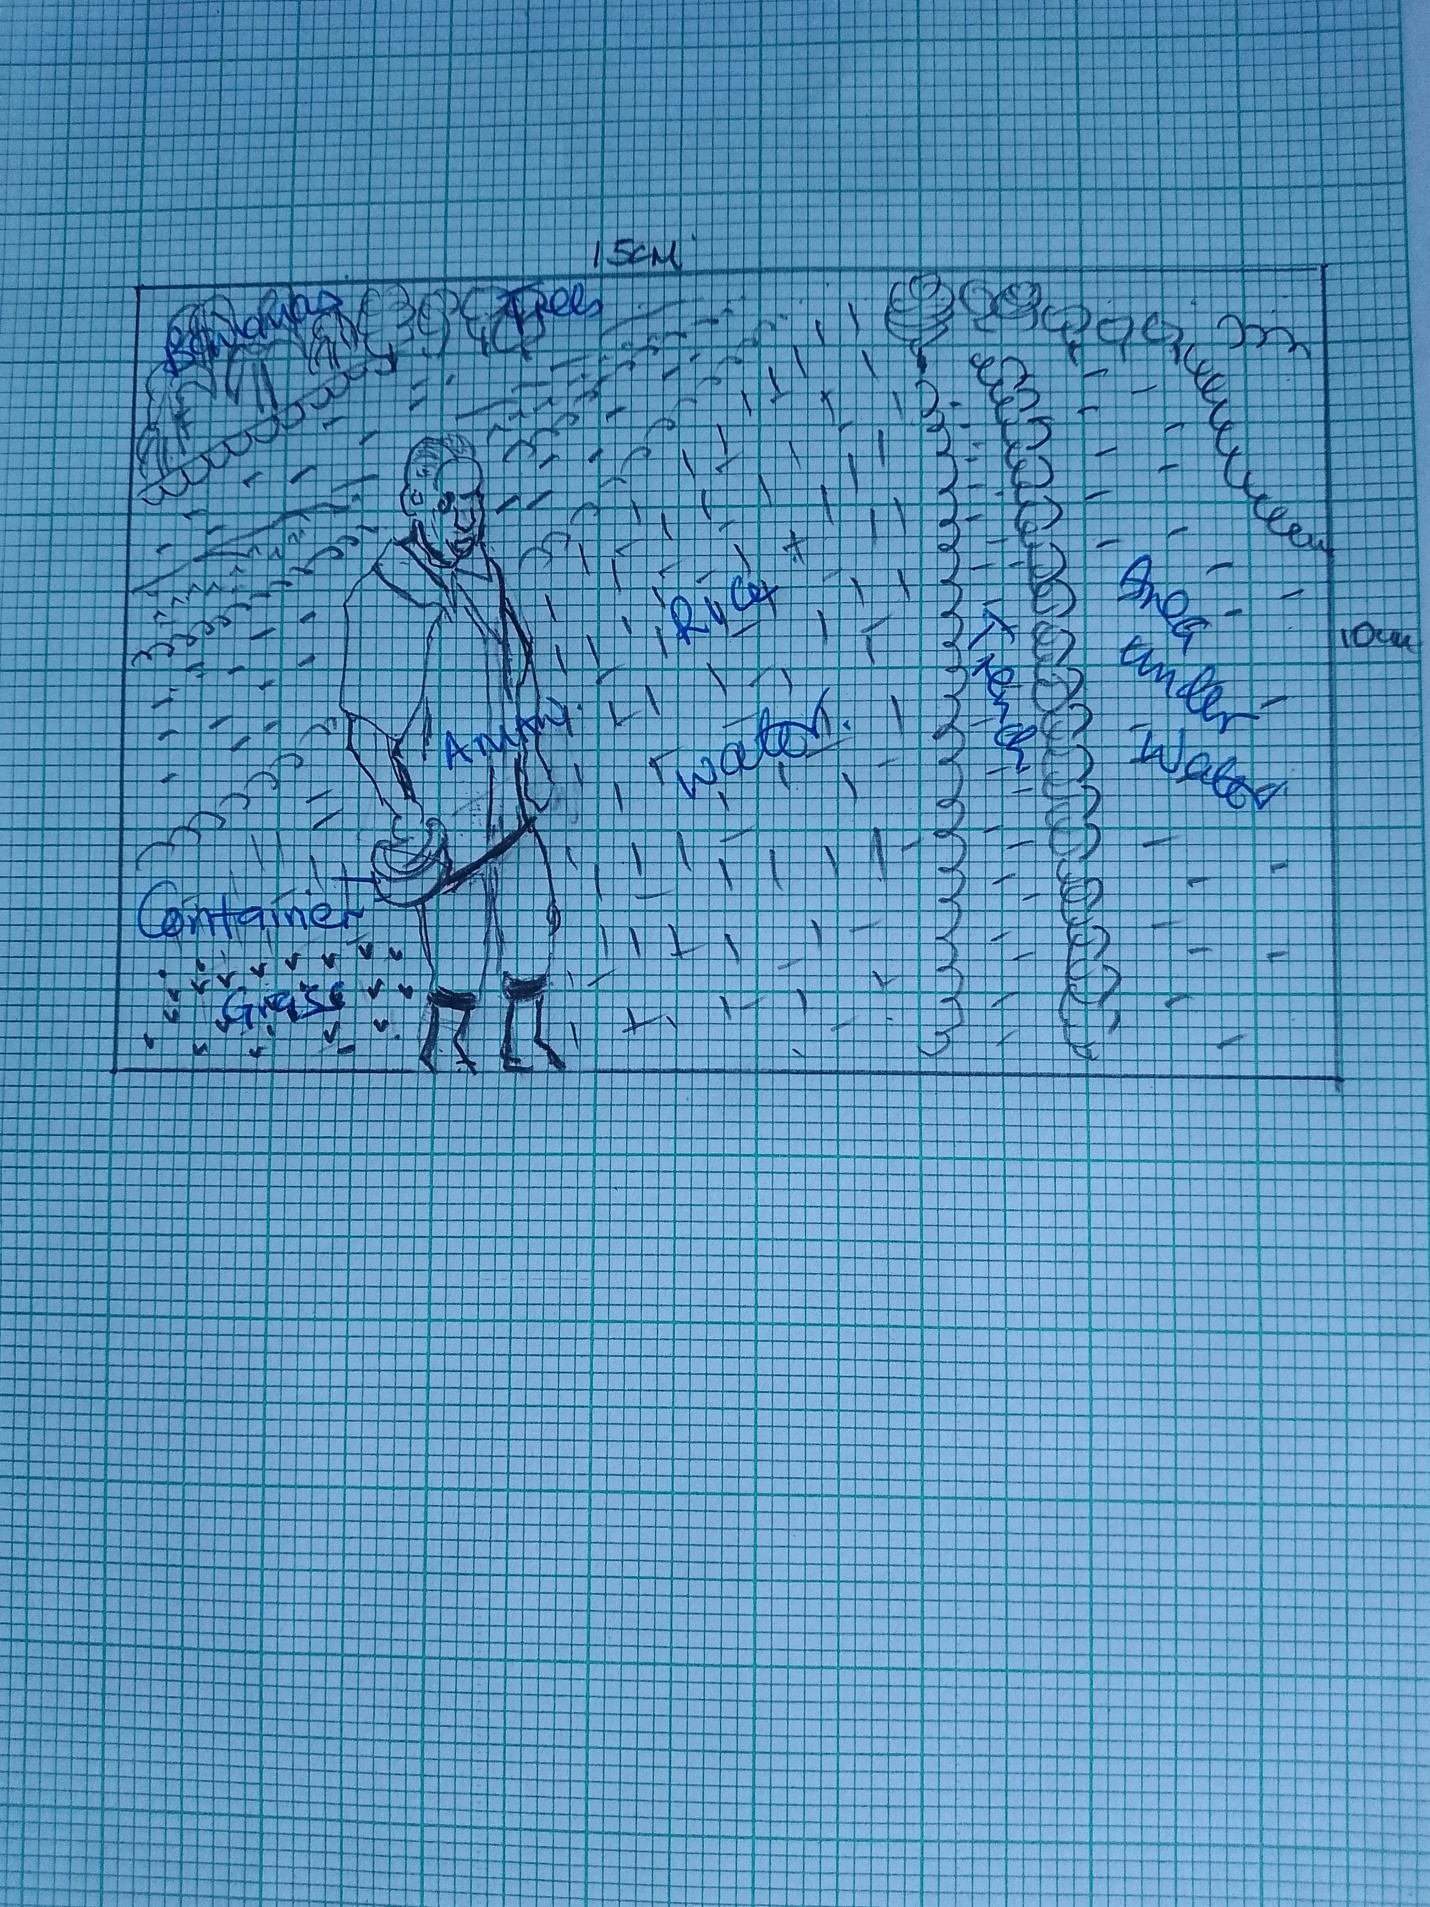 15cm
Bananas Trees
10cm
Area
under
Water
Trench
Water.
Container
Grass